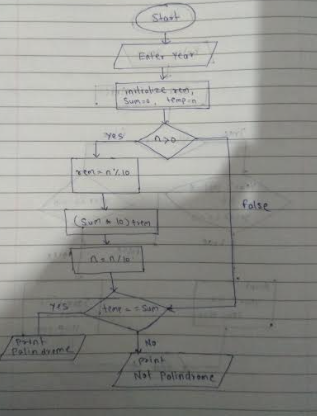 Start
Enter Year
initialize rem,
Sum=0, temp=n
n>0
Yes
false
rem = n%10
(Sum * 10) + rem
n = n/10
temp == Sum
Yes
No
Print
Palindrome
Print
Not Palindrome